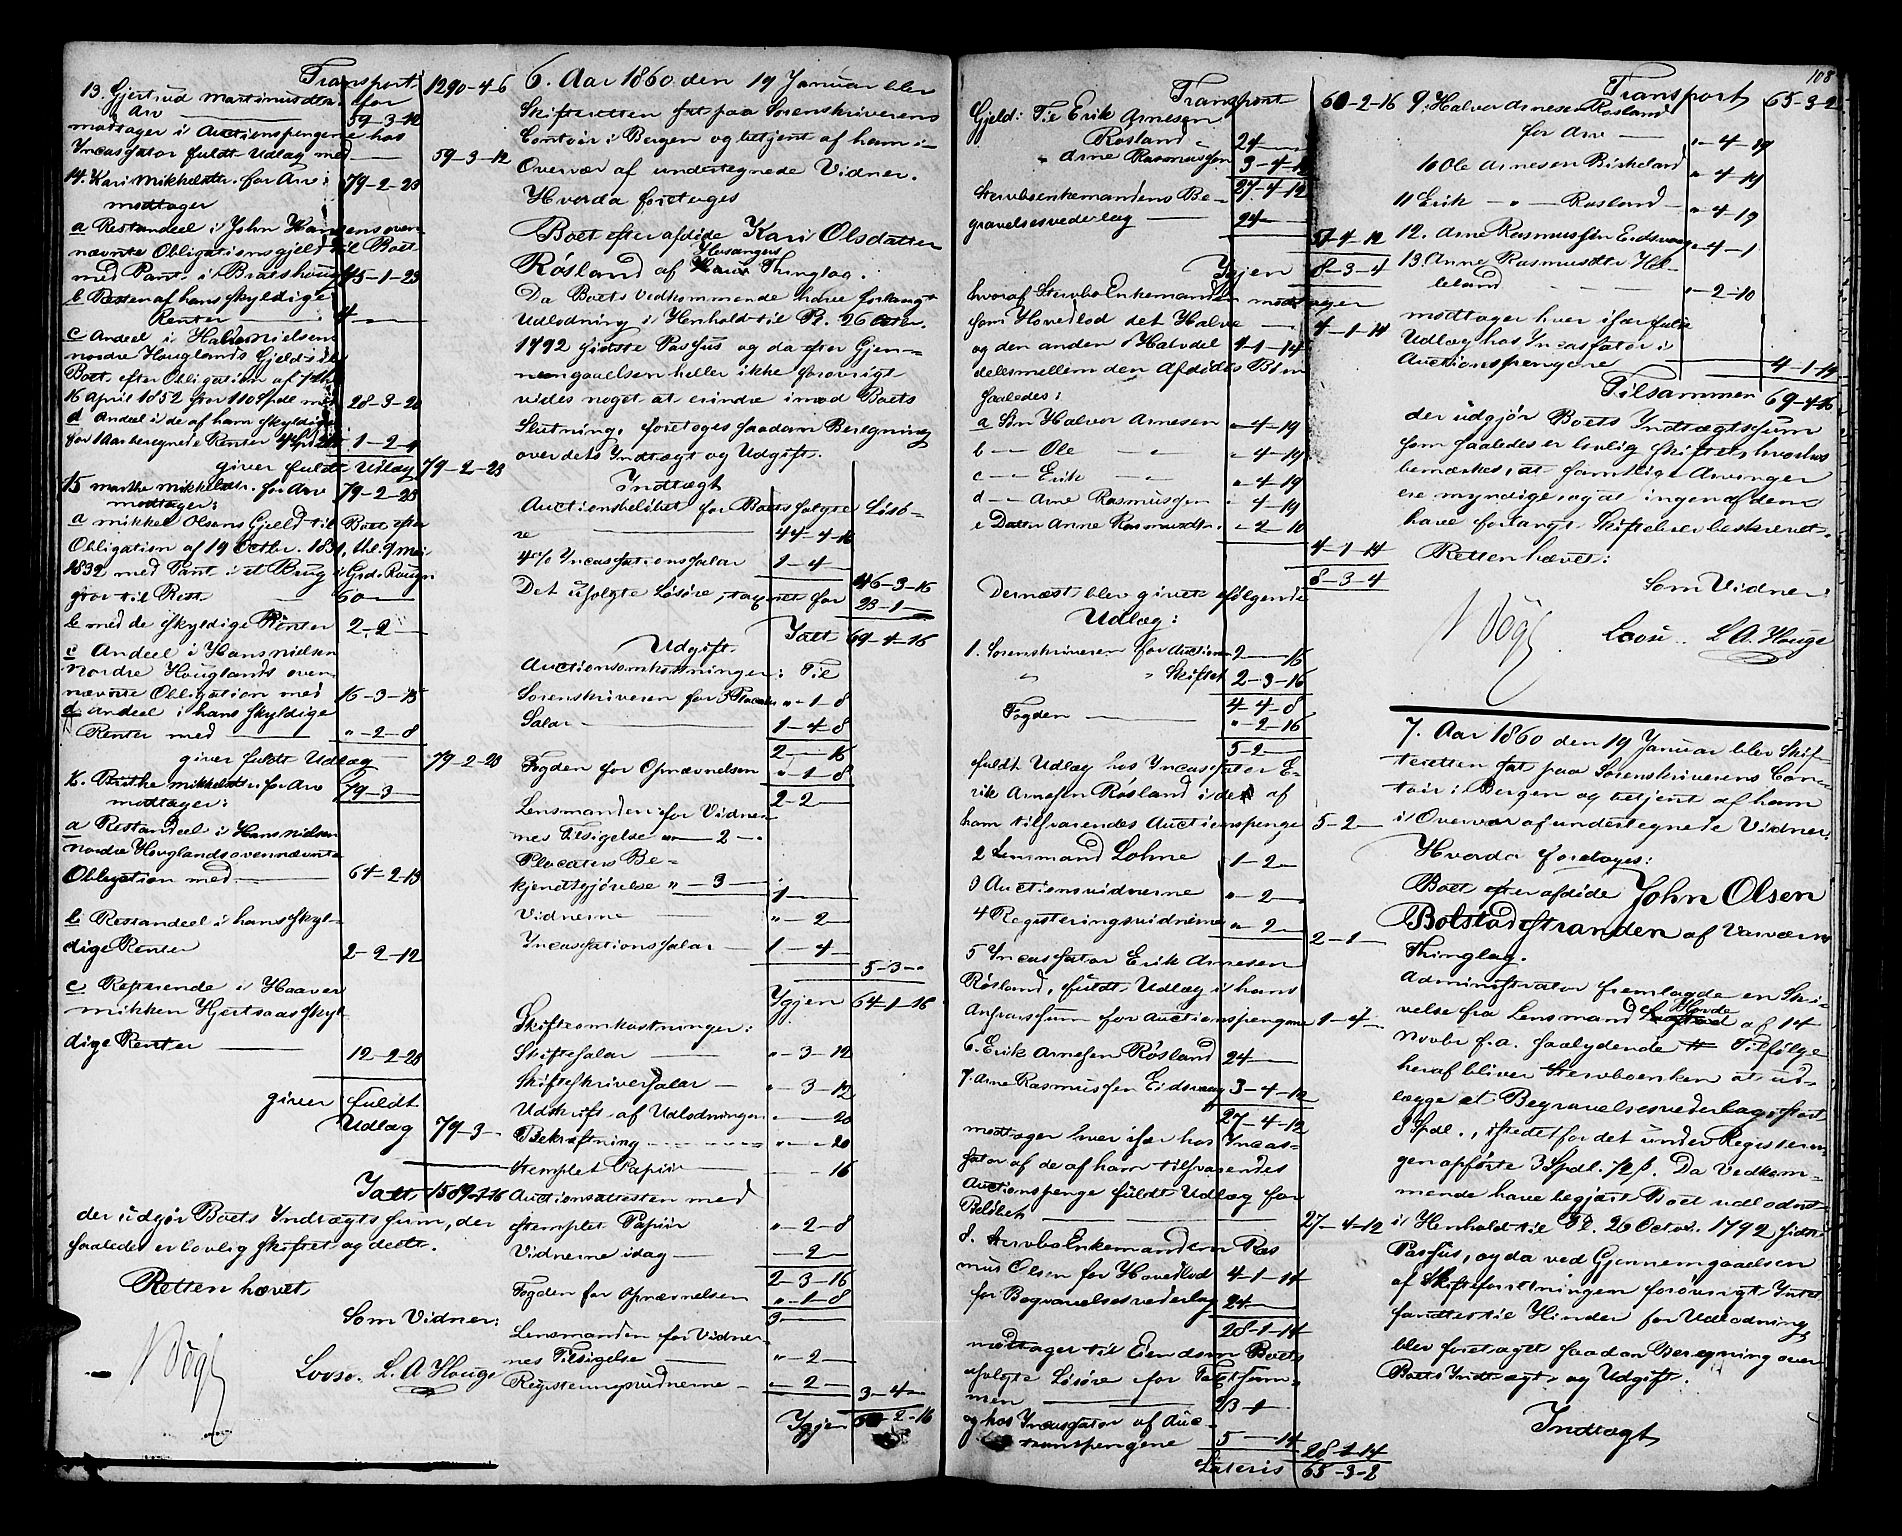 Transport 1290-4-6
13. Gjertrud Martinusdtr. for
Arv 59-3-12
modtager i Auctionspengene hos
Incassator fuldt Udlæg med 59-3-12
14. Kari Mikkelsdtr. for Arv: 79-2-23
modtager
a Restandeel i John Hansens oven-
nævnte Obligationsgjeld til Boet
med Pant i Bratshoug 45-1-23
b Resten af hans skyldige
Renter 4
c Andeel i Hans Nielsen
nordre Houglands Gjeld til
Boet efter Obligation af
16 April 1852 for 110 Spdl med 28-3-20
d Andeel i de af ham skyldige
for 1 Aar beregnede Renter 1-2-4
giver fuldt Udlæg 79-2-23
15 Marthe Mikkelsdtr. for Arv 79-2-23
modtager:
a Mikkel Olsens Gjeld til Boet efter
Obligation af 19 Octbr. 1831, thl. 9 Mai
1832 med Pant i et Brug i Grd.
giør til Rest 60
b med de skyldige Renter 2-2
c Andeel i Hans Nielsen
Nordre Houglands oven-
nævnte Obligation med 16-3-15
d Andeel i hans skyldige
Renter med "-2-8
giver fuldt Udlæg 79-2-23
Birthe Mikkelsdtr for Arv 79-3
modtager:
a Restandeel i Hans Nielsen
nordre Houglands ovennævnte
Obligation med 64-2-13
b Restandeel i hans skyl-
dige Renter 2-2-12
c Resterende i Haaver
Mikken Hjertaas skyl-
dige Renter 12-2-23
giver fuldt
Udlæg 79-3
Ialt 1589-4-16
der udgjør Boets Indtægtssum, der
saaledes er lovlig skiftet og deelt.
Retten hævet
Som Vidner:
L. A. Houge
6. Aar 1860 den 19 Januar blev
Skifteretten sat paa Sorenskriverens
Contoir i Bergen og betjent af ham i
Overvær af undertegnede Vidner.
Hvorda foretoges
Boet efter afdøde Kari Olsdatter
Røsland af Hosangers Thinglag.
Da Boets Vedkommende have forlangt
Udlodning i Henhold til Pl. 26 Octbr.
1792 sidste Passus og da efter Gjen-
nemgaaelsen heller ikke forøvrigt
vides noget at erindre imod Boets
Slutning, foretoges saadan Beregning
over dets Indtægt og Udgift.
Indtægt
Auctionsbeløbet for Boets solgte Løsø-
re 44-4-16
4% Incassationssalar 1-4
46-3-16
Det usolgte Løsøre, taxeret for 23-1
Ialt 69-4-16
Udgift
Auctionsomkostninger: Til
Sorenskriveren for 3 Placater "-1-8
Salar 1-4-8
2-"-16
Fogden for Opnævnelsen "-1-8
2-2
Lensmanden for Vidner-
nes Tilsigelse "-2-"
Placaters Be-
kjendtgjørelse "-3- 1
Vidnerne "-2
Incassationssalar 1-4
5-3-"
Igjen 64-1-16
Skifteomkostninger:
Skiftesalar "-3-12
Skifteskriversalar "-3-12
Udskrift af Udlodningen "-"-20
Bekræftning "-"-20
Stemplet Papiir -16
Auctionsattesten med
stemplet Papiir "-2-8
Vidnerne idag -2
2-3-16
Fogden for Opnævnelsen "-1-8
3
Lensmanden for Vidner-
nes Tilsigelse "-2
Registeringsvidnerne "-2
3-4
Igjen 60-2-16
Transport 60-2-16
Gjeld: Til Erik Arnesen
Røsland 24
" Arne Rasmussen 3-4-12
27-4-12
Stervboenkemandens Be-
gravelsesvederlag 24
51-4-12
Igjen 8-3-4
hvoraf StervboEnkemanden modtager
som Hovedlod det Halve 4-1-14
og den anden Halvdel 4-1-14
deles mellem den Afdødes Børn
saaledes:
a Søn Halvor Arnesen "-4-19
b " Ole " "-4-19
c " Erik " "-4-19
d " Arne Rasmussen "-4-19
e Datter Anne Rasmusdtr. "-2-10
4-1-14
8-3-4
Dernæst blev givet følgende
Udlæg:
1. Sorenskriveren for Auction 2-"-16
" " Skiftet 2-3-16
4-4-8
Fogden "-2-16
5-2
fuldt Udlæg hos Incassator E-
rik Arnesen Røsland i de af
ham tilsvarendes Auctionspenge 5-2
2 Lensmand Lohne 1-2
3 Auctionsvidnerne "-2
4 Registeringsvidnerne "-2
2-1
5 Incassator Erik Arnesen
Røsland, fuldt Udlæg i hans
Ansvarssum for Auctionspengene 1-4
6. Erik Arnesen Røsland 24
7. Arne Rasmussen Eidsvaag 3-4-12
27-4-12
modtager hver især hos Incas-
sator af de af ham tilsvarendes
Auctionspenge fuldt Udlæg for
Beløbet 27-4-12
8. StervboEnkemanden Ras
mus Olsen for Hovedlod 4-1-14
for Begravelsesvederlag 24
28-1-14
modtager til Eiendom Boets
usolgte Løsøre for Taxtsum-
men 23-1
og hos Incassator af Auc-
tionspengene 5-"-14
28-1-14
Lateris 65-3-2
108
Transport 65-3-2
9. Halvor Arnesen Røsland
for Arv "-4-19
10 Ole Arnesen Birkeland "-4-19
11 Erik " Røsland "-4-19
12. Arne Rasmussen Eidsvaag "-4-19
13. Anne Rasmusdtr Hel-
leland "-2-10
modtager hver især fuldt
Udlæg hos Incassator i
Auctionspengene 4-1-14
Tilsammen 69-4-16
der udgjør Boets Indtægtssum
som saaledes er lovlig skiftet, hvorhos
bemærkes, at samtlige Arvinger
ere myndige og at ingen af dem
have forlangt Skiftebrev beskrevet.
Retten hævet:
Som Vidner:
L. A. Houge
7. Aar 1860 den 19 Januar blev Skif-
teretten sat paa Sorenskriverens Con-
toir i Bergen og betjent af ham
i Overvær af undertegnede Vidner.
Hvorda foretoges:
Boet efter afdøde John Olsen
Bolstadstranden af Thinglag.
Administrator fremlagde en Skri-
velse fra Lensmand Horde af 14
Novbr f. a. saalydende Tilfølge
heraf bliver Stervboenken at ud-
lægge et Begravelsesvederlag, stort
8 Spdl., istedetfor det under Registerin-
gen opførte 3 Spdl. 72 ß. Da Vedkom-
mende have begjært Boet udlodnet
i Henhold til Pl. 26 Octbr. 1792 sidste
Passus, og da ved Gjennemgaaelsen
af Skifteforretningen forøvrigt Intet
fandtes til Hinder for Udlodning
blev foretaget saadan Beregning over
Boets Indtægt og Udgift.
Indtægt